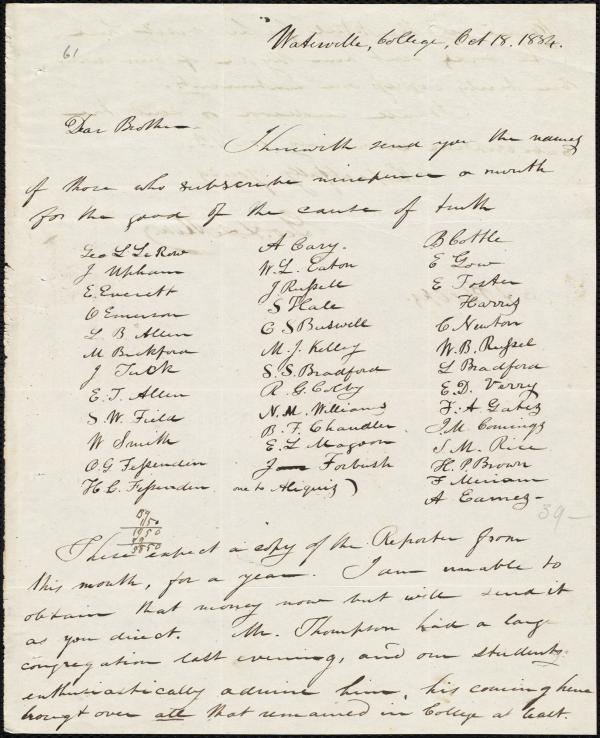 61
Waterville, College, Oct 18. 1834.
Dear Brother
I herewith send you the names
of those who subscribe ninepence a month
for the good of the cause of truth
Geo L LeRow
J Upham
E. Everett
C Emerson
L B Allen
M Bickford
J Tuck
E. T. Allen
S. W. Field
W Smith
O. G Fessenden
H. C. Fessenden
A Cary.
W. L. Eaton
J Russell
S Hale
C S Buswell
M. J. Kelley
S. S. Bradford
R. G. Colby
N. M. Williams
B. F. Chandler
E. L. Magoon
J— Forbush
one to Aliquis)
B Cottle
E Gow
E Foster
Harris
C Newton
W. B. Russel
L Bradford
E. D. Verry
F. A Gates
J. M. Comings
S. M. Rice
H. P. Brown
F. Merriam
A Eames-
39-
39
1950
5850
These expect a copy of the Reporter from
this month, for a year. I am unable to
obtain that money now but will send it
as you direct. Mr. Thompson had a large
congregation last evening, and our students
enthusiastically admire him, his coming here
brought over all that remained in College at least.